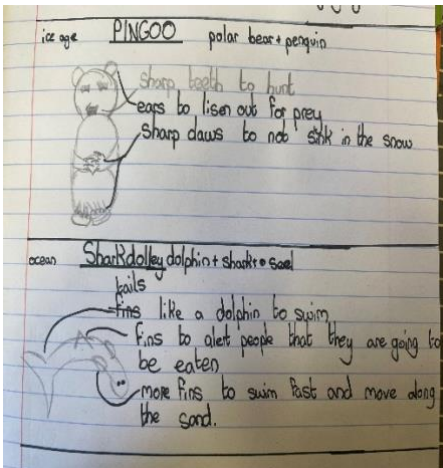 ice age PINGOO polar bear + penguin
sharp teeth to hunt
ears to lisen out for prey
sharp claws to not sink in the snow
ocean Sharkdolley dolphin + shark + seal
tails
fins like a dolphin to swim
fins to alert people that they are going to
be eaten
more fins to swim fast and move along
the sand.